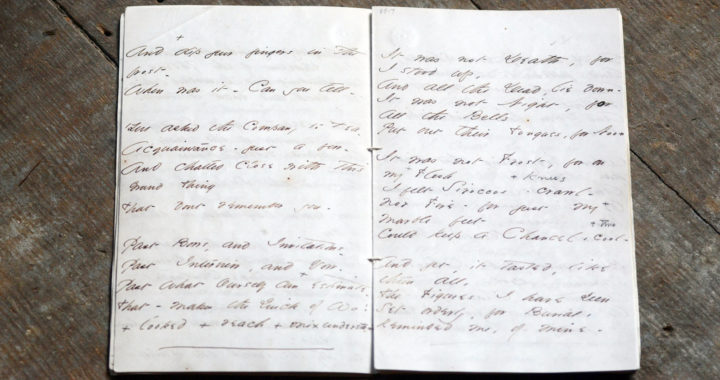 +
And dip your fingers in the
frost -
When was it - Can you tell -
You asked the Company to tea -
Acquaintance - just a few -
And chatted close with this
Grand thing
that dont remember you -
Past Bows, and Invitations -
Past Interview, and Vow -
Past what Ourself can +estimate -
that - makes the Quick of Wo!
+ looked + reach + understand
It was not Death, for
I stood up,
And all the Dead, lie down -
It was not Night, for
All the Bells
Put out their Tongues, for Noon
It was not Frost, for on
my Flesh + Knees
I felt Siroccos - crawl -
Nor Fire - for just my +
marble feet + two
Could keep a Chancel, cool -
And yet, it tasted, like
them all,
The Figures I have seen
Set orderly, for Burial
Reminded me, of mine -